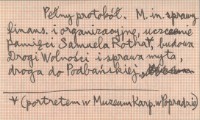 Pełny protokół. M. in. sprawy
finans. i organizacyjne, uczczenie
pamięci Samuela Rotha*, budowa
Drogi Wolności i sprawa myta,
droga do Podbańskiej,
* (portretem w Muzeum Karp. w Popradzie)